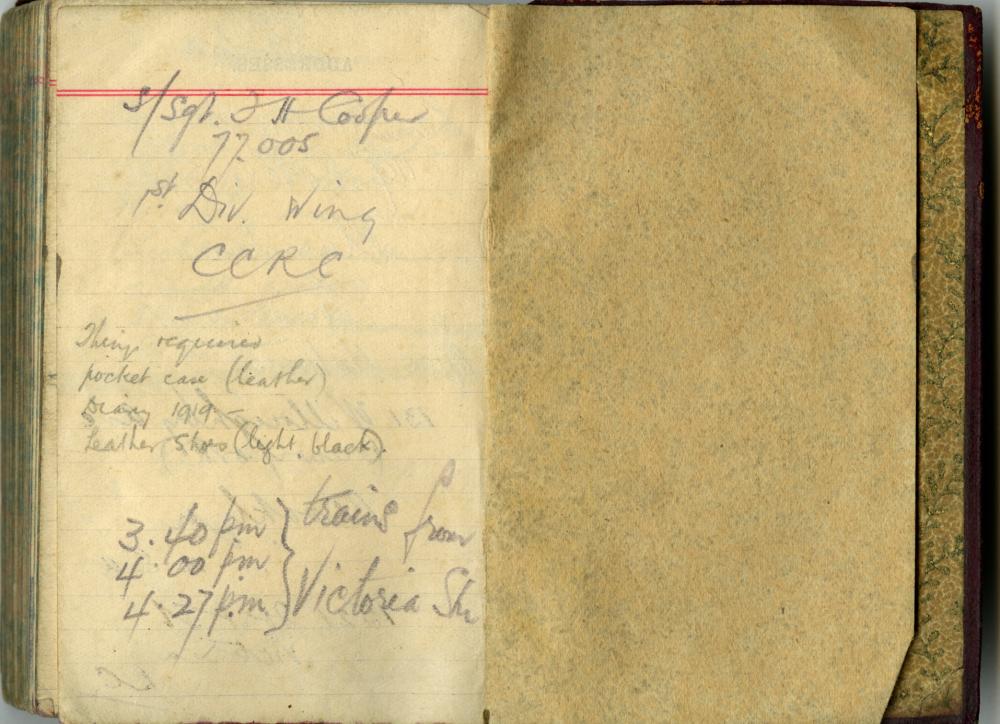 S/Sgt. J H Cooper
77005
1st Div. Wing
CCRC
Things required
pocket case (leather)
Diary 1919 -
Leather Shoes (light, black).
3.40 pm } trains from
4.00 pm
4.27 p.m. } Victoria Stn